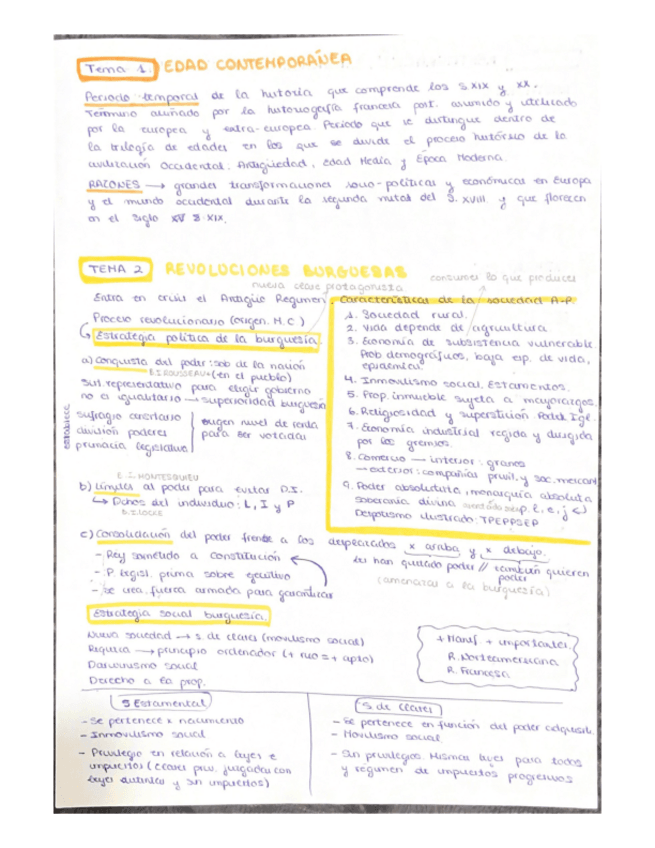 Tema 1. EDAD CONTEMPORÁNEA
Periodo temporal de la historia que comprende los S.XIX y XX.
Término acuñado por la historiografía francesa post. asumido y utilizado
por la europea y extra-europea. Periodo que se distingue dentro de
la trilogía de edades en los que se divide el proceso histórico de la
civilización Occidental: Antigüedad, Edad Media y Época Moderna.
RAZONES → grandes transformaciones socio-políticas y económicas en Europa
y el mundo occidental durante la segunda mitad del S. XVIII y que florecen
en el siglo S.XIX.
TEMA 2 REVOLUCIONES BURGUESAS
nueva clase protagonista
Entra en crisis el Antiguo Regimen.
Proceso revolucionario (origen. H.C)
Estrategia política de la burguesía.
a) Conquista del poder: sob de la nación
E.I ROUSSEAU (en el pueblo)
Suf. representativo para elegir gobierno
no es igualitario → superioridad burguesía
establece
sufragio censitario
división poderes
primacía legislativa
exigen nivel de renta
para ser votadas
E.I. MONTESQUIEU
b) Límites al poder para evitar D.I.
↳ Dchos del individuo: L, I y P
E.I.LOCKE
consumes lo que produces
Características de la sociedad A.R.
1. Sociedad rural.
2. Vida depende de agricultura
3. Economía de subsistencia vulnerable
Prob demográficos, baja esp. de vida,
epidemias.
4. Inmovilismo social, Estamentos.
5. Prop. inmueble sujeta a mayorazgos.
6. Religiosidad y superstición. Poder Igl.
7. Economía industrial regida y dirigida
por los gremios.
8. Comercio → interior: granos
→ exterior: compañías privil. y soc. mercant
9. Poder absolutista, monarquía absoluta
Soberanía divina p. l, e, j
Despotismo ilustrado: TPEPPSEP
c) Consolidación del poder frente a los despechados x arriba y x debajo.
les han quitado poder // también quieren
poder
(amenazas a la burguesía)
- Rey sometido a constitución
- P. legisl. prima sobre ejecutivo
- Se crea fuerza armada para garantizar
Estrategia social burguesía.
Nueva sociedad → s. de clases (movilismo social)
Riqueza → principio ordenador (+ rico = + apto)
Darwinismo social
Derecho a la prop.
+ Manif. + importantes.
R. Norteamericana
R. Francesa
S Estamental
- Se pertenece x nacimiento
- Inmovilismo social
- Privilegio en relación a leyes e
impuestos (clases priv. juzgadas con
leyes distintas y sin impuestos)
S de Clases
- Se pertenece en función del poder adquisit.
- Movilismo social
- Sin privilegios. Mismas leyes para todos
y régimen de impuestos progresivos